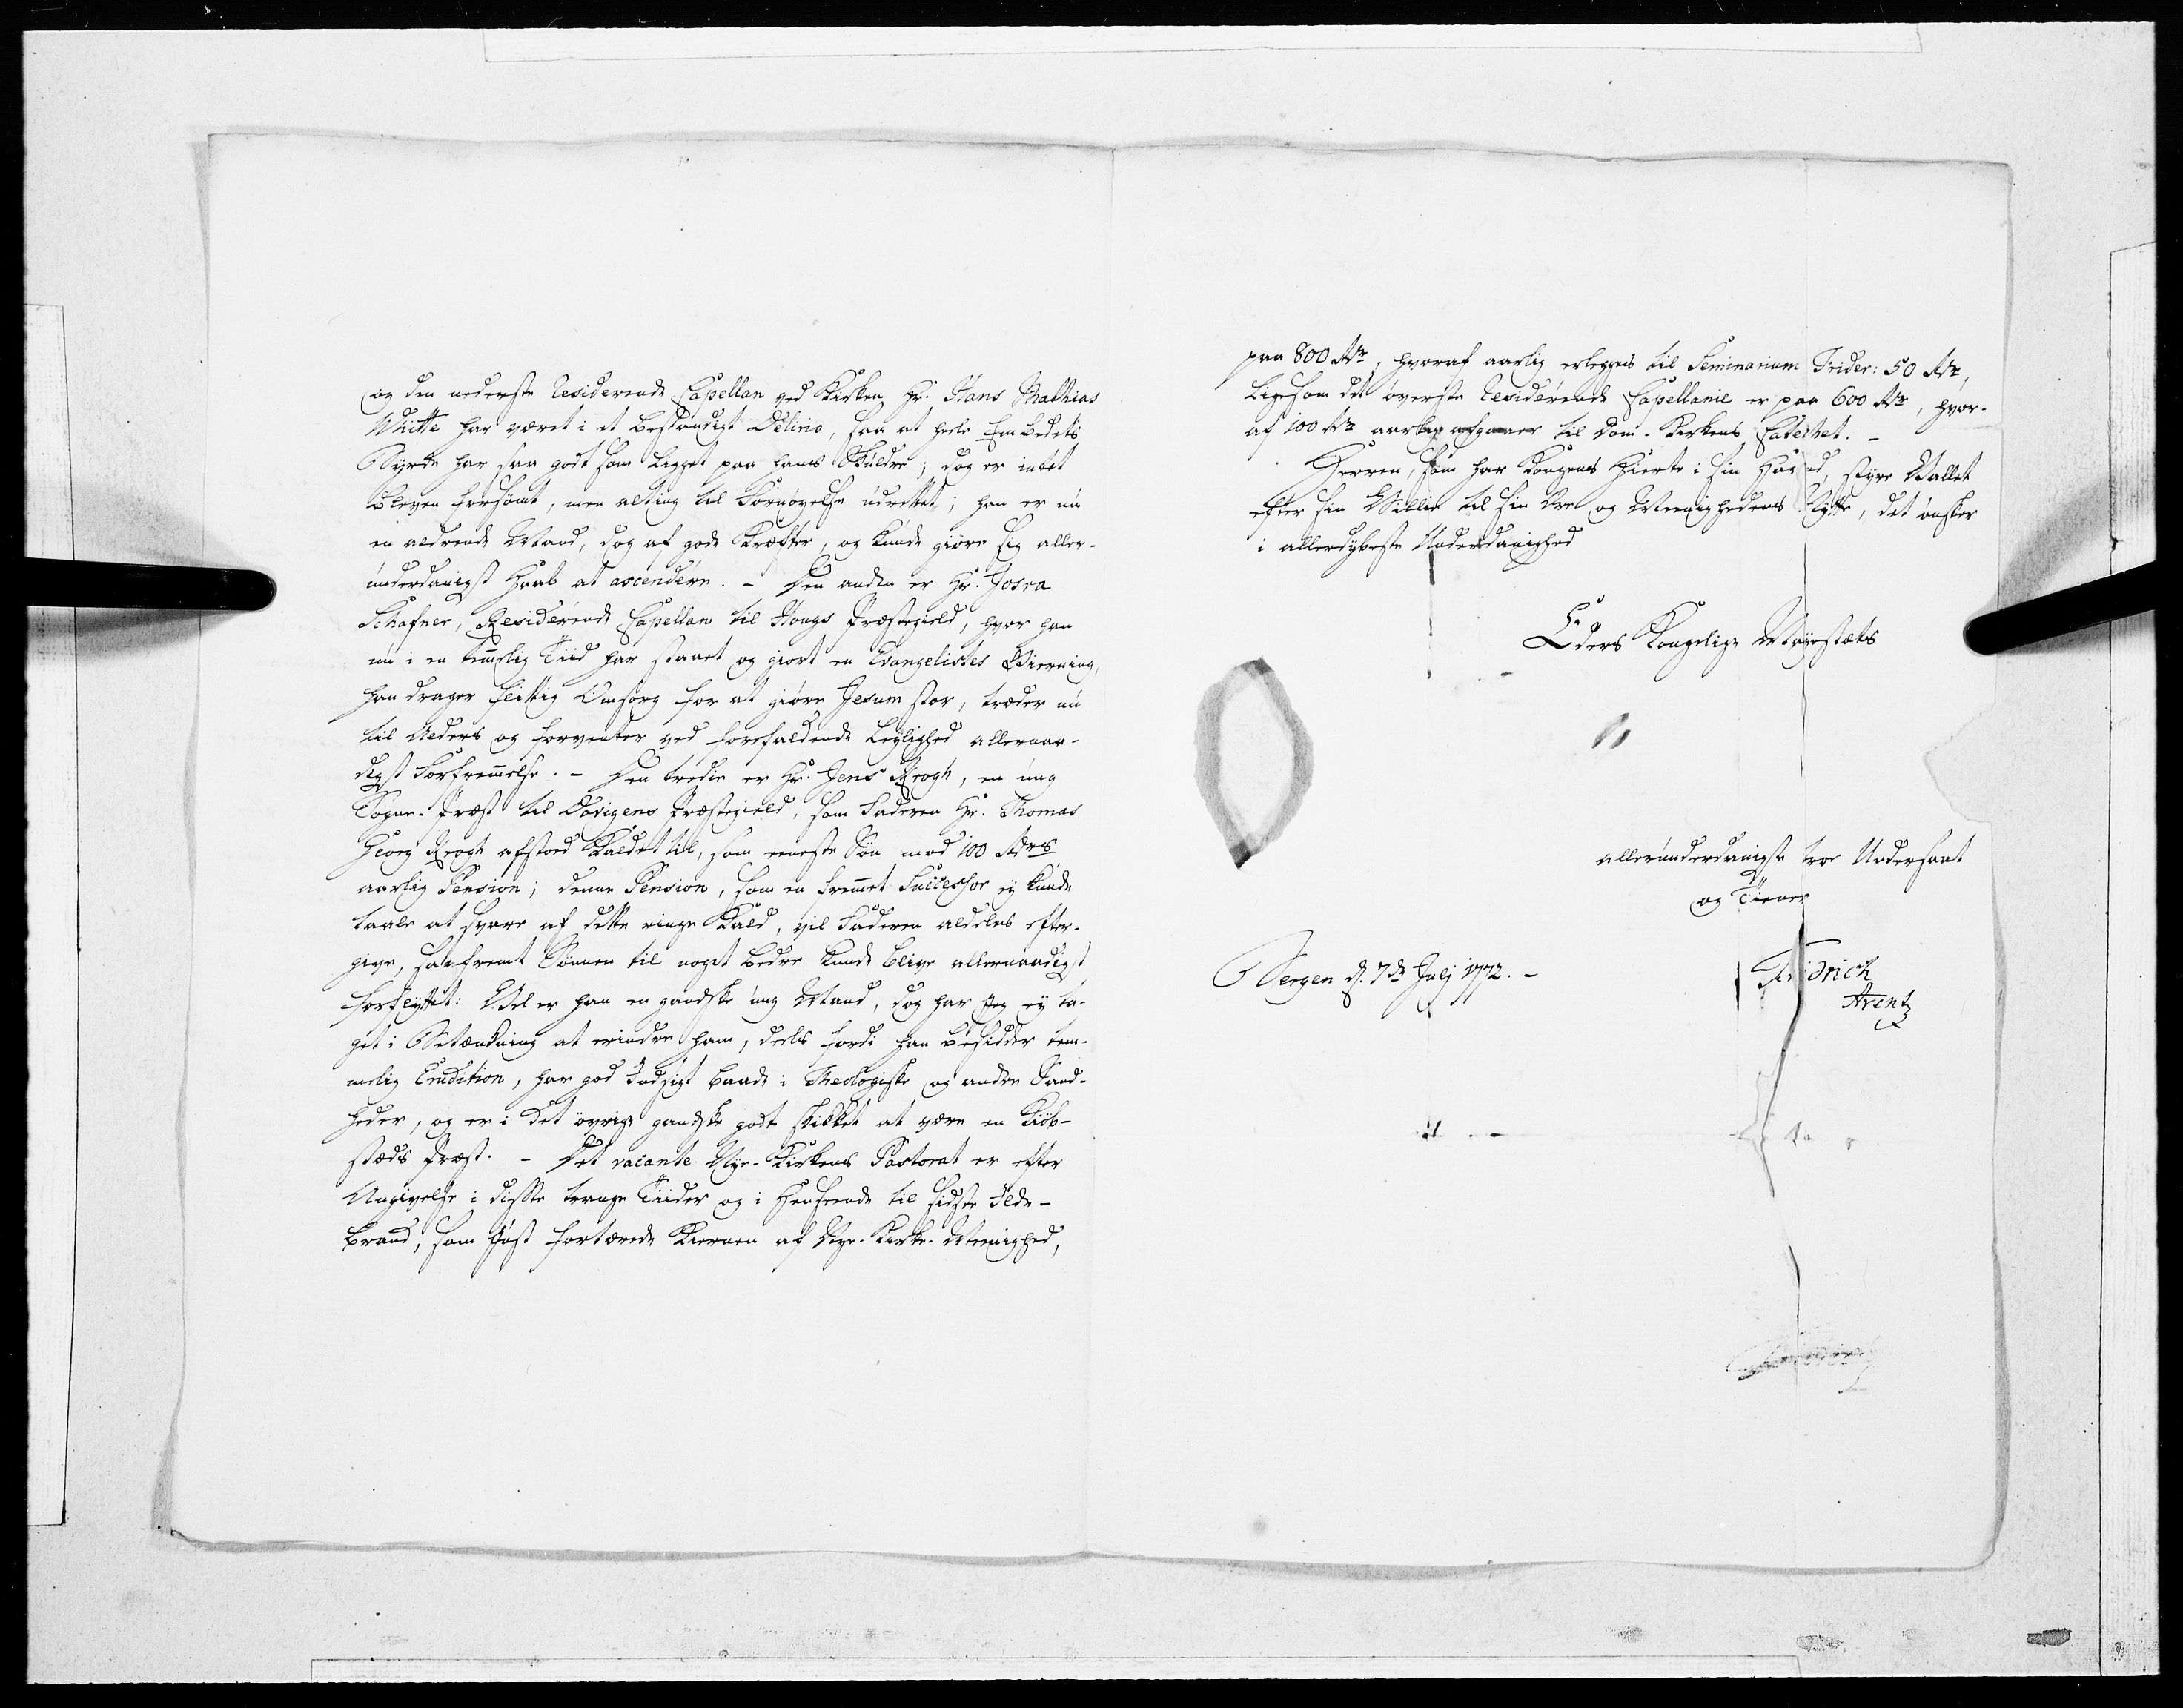 og den nederste Residerende Capellan ved Kirken Hr. Hans Mathias
Whitte har været i et bestændigt Delirio, saa at heele Embedets
Byrde har saa godt som ligget paa hans Skuldre; dog er intet
bleven forsömt, men alting til Fornöyelse udrettet; han er nu
en aldrende Mand, dog af gode Kræfter, og kunde giöre sig aller-
underdanigst Haab at ascendere. – Den anden er Hr. Josva
Schafner, Residerende Capellan til Hougs Præstegield, hvor han
nu i en temelig Tiid har staaet og giort en Evangelistes Gierning,
han drager flittig Omsorg for at giöre Jesum stor, træder nu
til Alders og forventer ved forefaldende Leylighed allernaa-
digst Forfremmelse. – Den tredie er Hr. Jens Krogh, en ung
Sogne-Præst til Davigens Præstegield, som Faderen Hr. Thomas
Georg Krogh afstoed Kaldet till, som eeneste Sön mod 100 Rdrs
aarlig Pension; denne Pension, som en fremmet Successor ey kunde
taale at svare af dette ringe Kald, vil Faderen aldeles efter-
give, saafremt Sönnen til noget bedre kunde blive allernaadigst
forflyttet: Vel er han en gandske ung Mand, dog har jeg ey ta-
get i Betænkning at erindre ham, deels fordi han besidder tem-
melig Erudition, har god Indsigt baade i Theologiske og andre Sand-
heder, og er i det övrige gandske godt skikket at være en Kiöb-
stæds Præst. – Det vacante Nye-Kirkens Pastorat er efter
Angivelse i disse trange Tiider og i Henseende til sidste Ilde-
brand, som just fortærede Kiernen af Nye-Kirke-Meenighed,
paa 800 Rdr, hvoraf aarlig erlegges til Seminarium Frider: 50 Rdr,
Ligesom det överste Residerende Capellanie er paa 600 Rdr, hvor-
af 100 Rdr aarlig afgaaer til Dom-Kirkens Catechet. –
Herren, som har Kongens Hierte i sin Haand, styre Valget
efter sin Villie til sin Ære og Meenighedens Nytte, det önsker
i allerdybeste Underdanighed
Eders Kongelige Mayestæts
allerunderdanigste troe Undersaat
og Tiener
Bergen d. 7de Julj 1772. –
Fridrich
Arentz